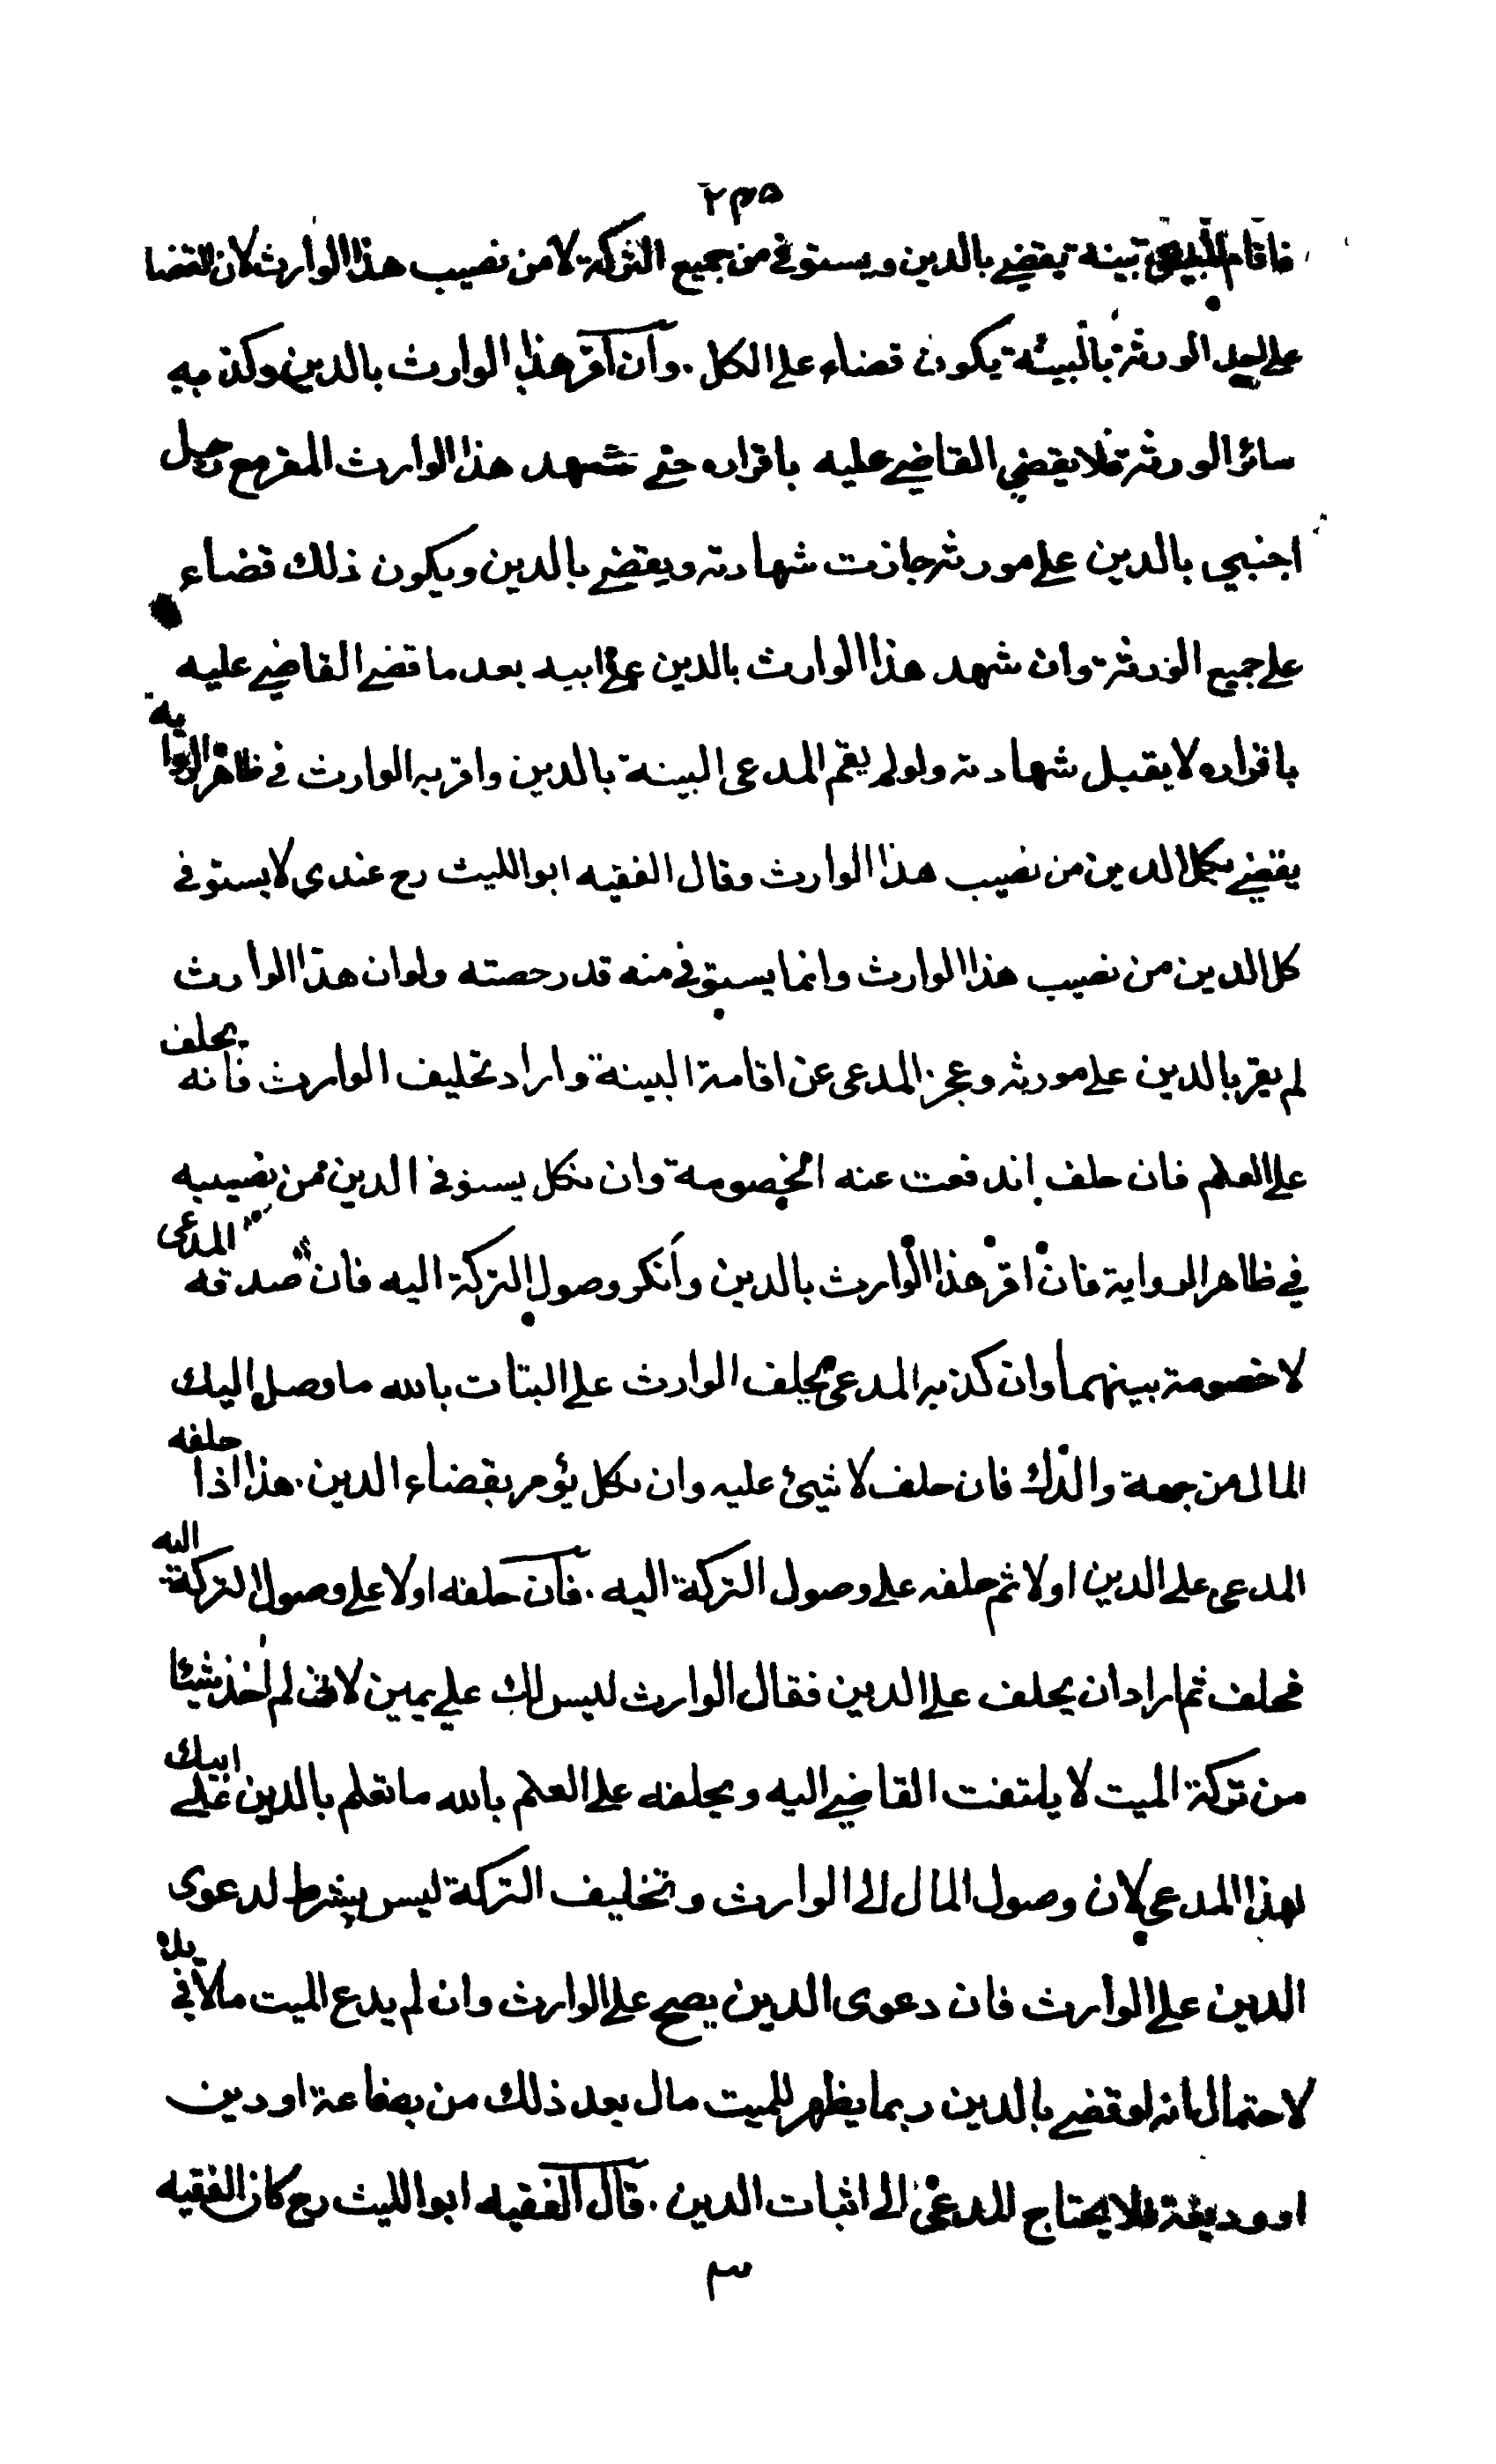 ٢٣٥
فاقام المدعي بينة يقضي بالدين ويستوفي من جميع التركة لا من نصيب هذا الوارث لان القضا
على احد الورثة بالبينة يكون قضاء على الكل . وان اقر هذا الوارث بالدين وكذبه
سائر الورثة فلا يقضي القاضي عليه باقراره حتى شهد هذا الوارث المقر مع رجل
اجنبي بالدين على مورثه جازت شهادته ويقضي بالدين ويكون ذلك قضاء
على جميع الورثة وان شهد هذا الوارث بالدين على ابيه بعد ما قضى القاضي عليه
باقراره لا يقبل شهادته ولو لم يقم المدعى البينة بالدين واقر به الوارث في ظاهر الرواية
يقضي بكل الدين من نصيب هذا الوارث وقال الفقيه ابو الليث رح عندى لا يستوفي
كل الدين من نصيب هذا الوارث وانما يستوفي منه قدر حصته ولو ان هذا الوارث
لم يقر بالدين على مورثه وعجز المدعى عن اقامة البينة واراد تحليف الوارث فانه يحلف
على العلم فان حلف اندفعت عنه الخصومة وان نكل يستوفي الدين من نصيبه
في ظاهر الرواية فان اقر هذا الوارث بالدين وانكر وصول التركة اليه فان صدقه المدعى
لا خصومة بينهما وان كذبه المدعى يحلف الوارث على البتات بالله ما وصل اليك
المال من جهة والدك فان حلف لا شيئ عليه وان نكل يؤمر بقضاء الدين . هذا اذا حلفه
المدعى على الدين اولا ثم حلفه على وصول التركة اليه . فان حلفه اولا على وصول التركة اليه
فحلف ثم اراد ان يحلف على الدين فقال الوارث ليس لك علي يمين لانى لم اخذ شيئا
من تركة الميت لا يلتفت القاضي اليه ويحلفه على العلم بالله ما تعلم بالدين على ابيك
لهذا المدعي لان وصول المال الى الوارث وتحليف التركة ليس بشرط لدعوى
الدين على الوارث فان دعوى الدين يصح على الوارث وان لم يدع الميت مالا في يده
لاحتمال انه لو قضي بالدين ربما يظهر للميت مال بعد ذلك من بضاعة او دين
او وديعة فلا يحتاج المدعى الى اثبات الدين . قال الفقيه ابو الليث رح كان الفقيه